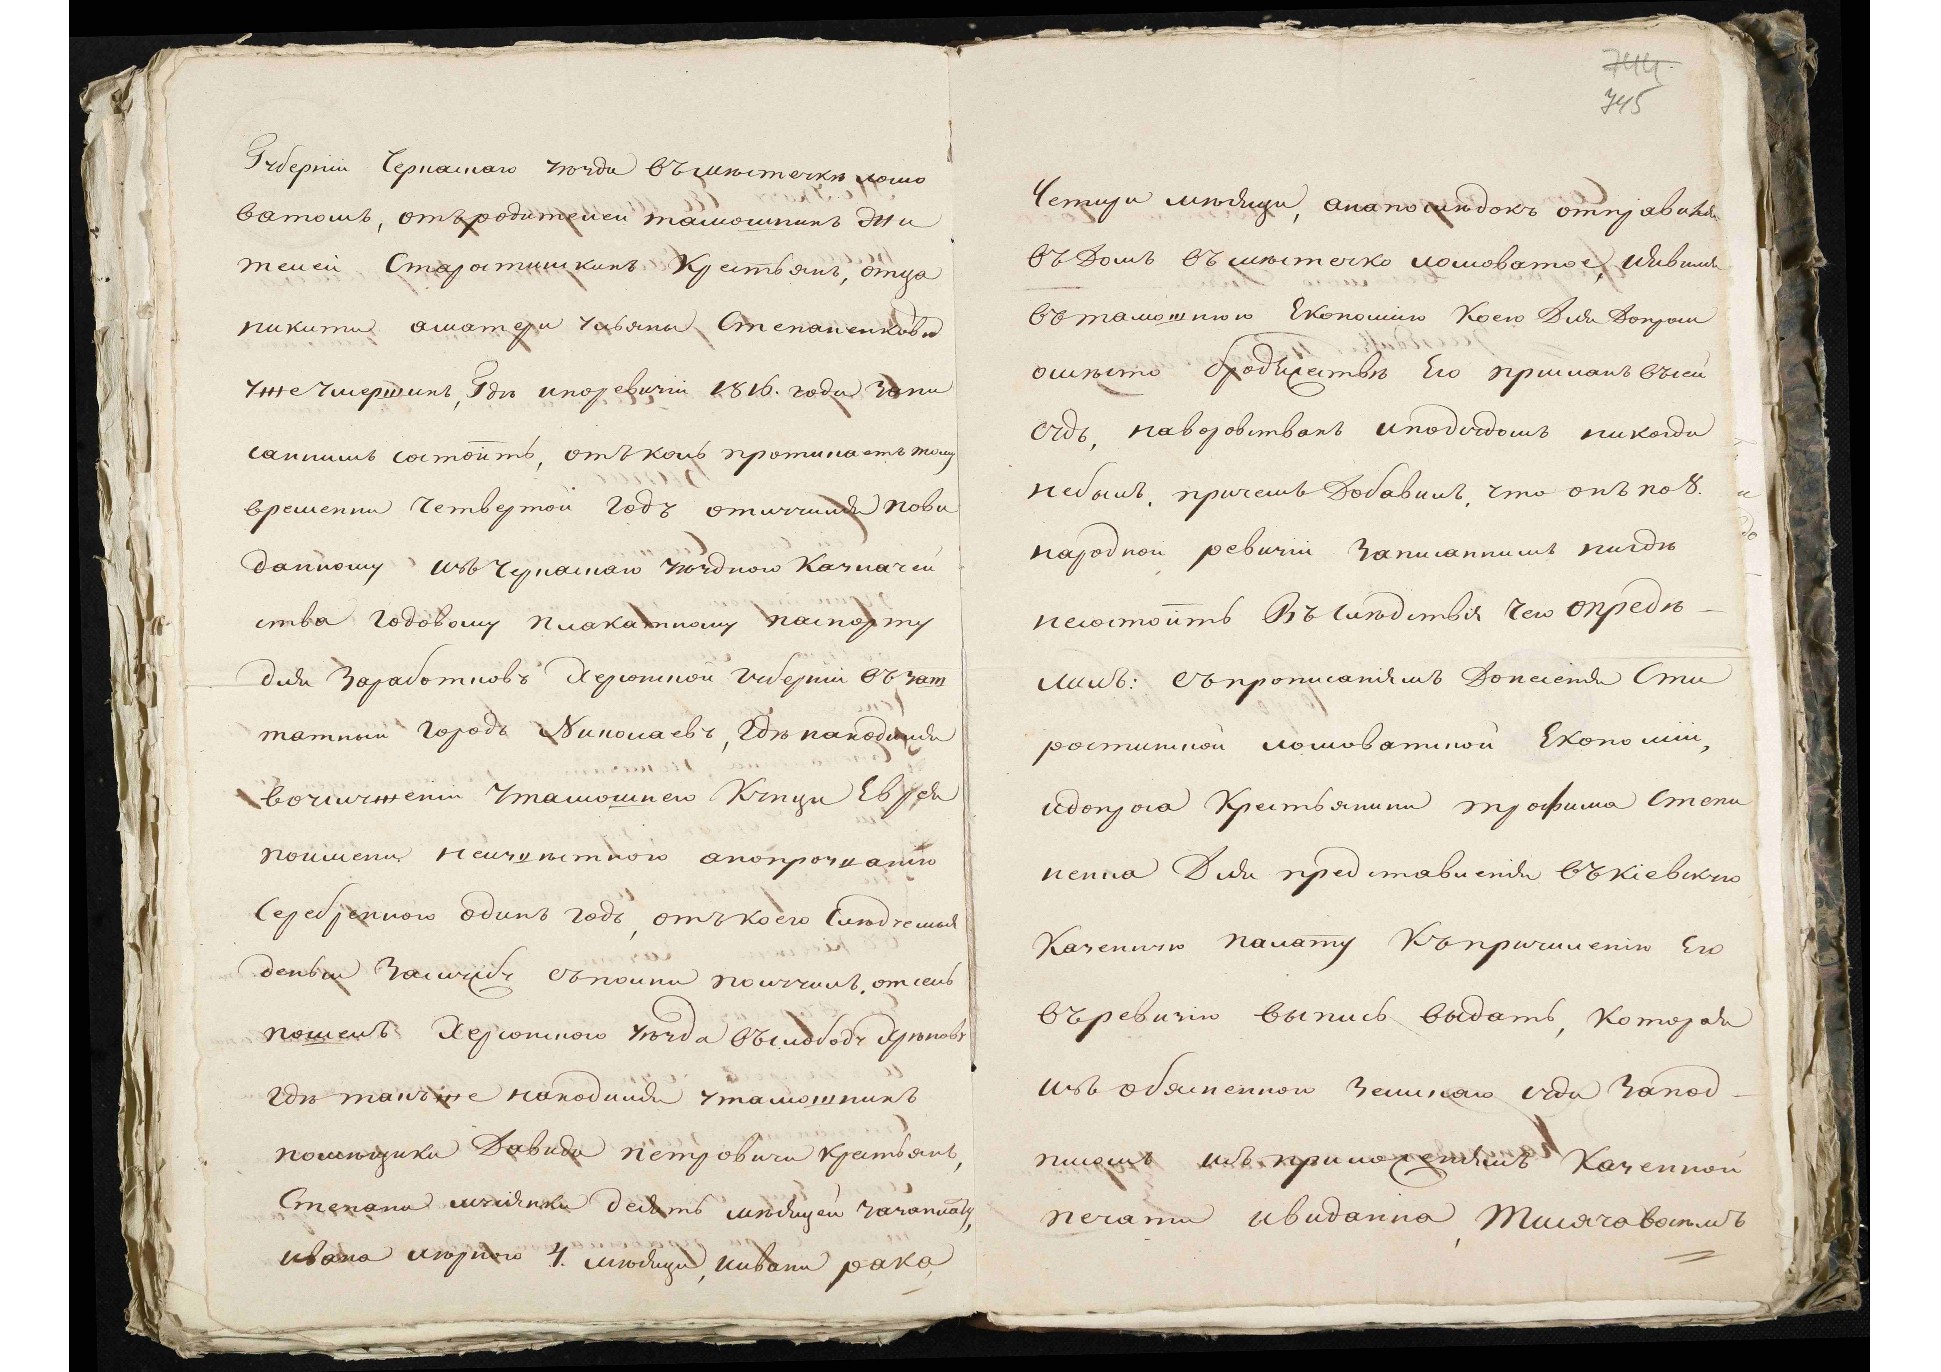 Губерніи Черкаскаго уѣзда въ мѣстечкѣ ломо
ватомъ, отъ родителей тамошнихъ жи
телей Старостинскихъ Крестьянъ, отца
никиты аматери ульяны Степаненковых
уже умершихъ, Гдѣ ипоревизіи 1816. года Запи
саннымъ состоитъ, отъ коль протикаетъ тому
времени Четвертой Годъ отлучился повы
данному изъ Черкаскаго уѣзднаго Казначей
ства Годовому плакатному паспорту
для Заработковъ Херсонской Губерніи въ зат
татный Городъ Николаевъ, Гдѣ находился
вочслуженіи утамошнего Купца Еврея
поимени неизвѣстного апопрочванію
Серебреного одинъ годъ, отъ коего Слѣдуемыя
деньги Заслужбу сполна получилъ, отсель
пошелъ Херсонского уѣзда въ слободу
Гдѣ такъже находился утамошнихъ
помѣщика Давида петровича Крестьянъ,
Степана десять мѣсяцей
ивана 4. мѣсяца, иивана рака,
745
Четыри мѣсяца, анапослѣдокъ отправился
въ Домъ въ мѣстечко ломоватое, иявился
въ тамошнюю Економію Коею Для Допроса
омѣсто бродяжествѣ Его присланъ въсей
судъ, наворовствахъ иподсудомъ никогда
небылъ, причемъ Добавилъ, что онъ по 8.
народной ревизіи Записаннымъ нигдѣ
несостоитъ Въ Слѣдствія Чего опредѣ-
лилъ: съпрописаніямъ Донесенія Ста
ростинской ломоватской Економіи,
идопроса Крестьянина трофима Степа
ненка Для представленія въ кіевскую
Казенную палату Къпричисленію Его
въревизію выпись выдать, Которая
изъ обясненного Земскаго суда Запод-
писомъ исприложеніямъ Казенной
печати ивыданна, Тысяча восѣмъ